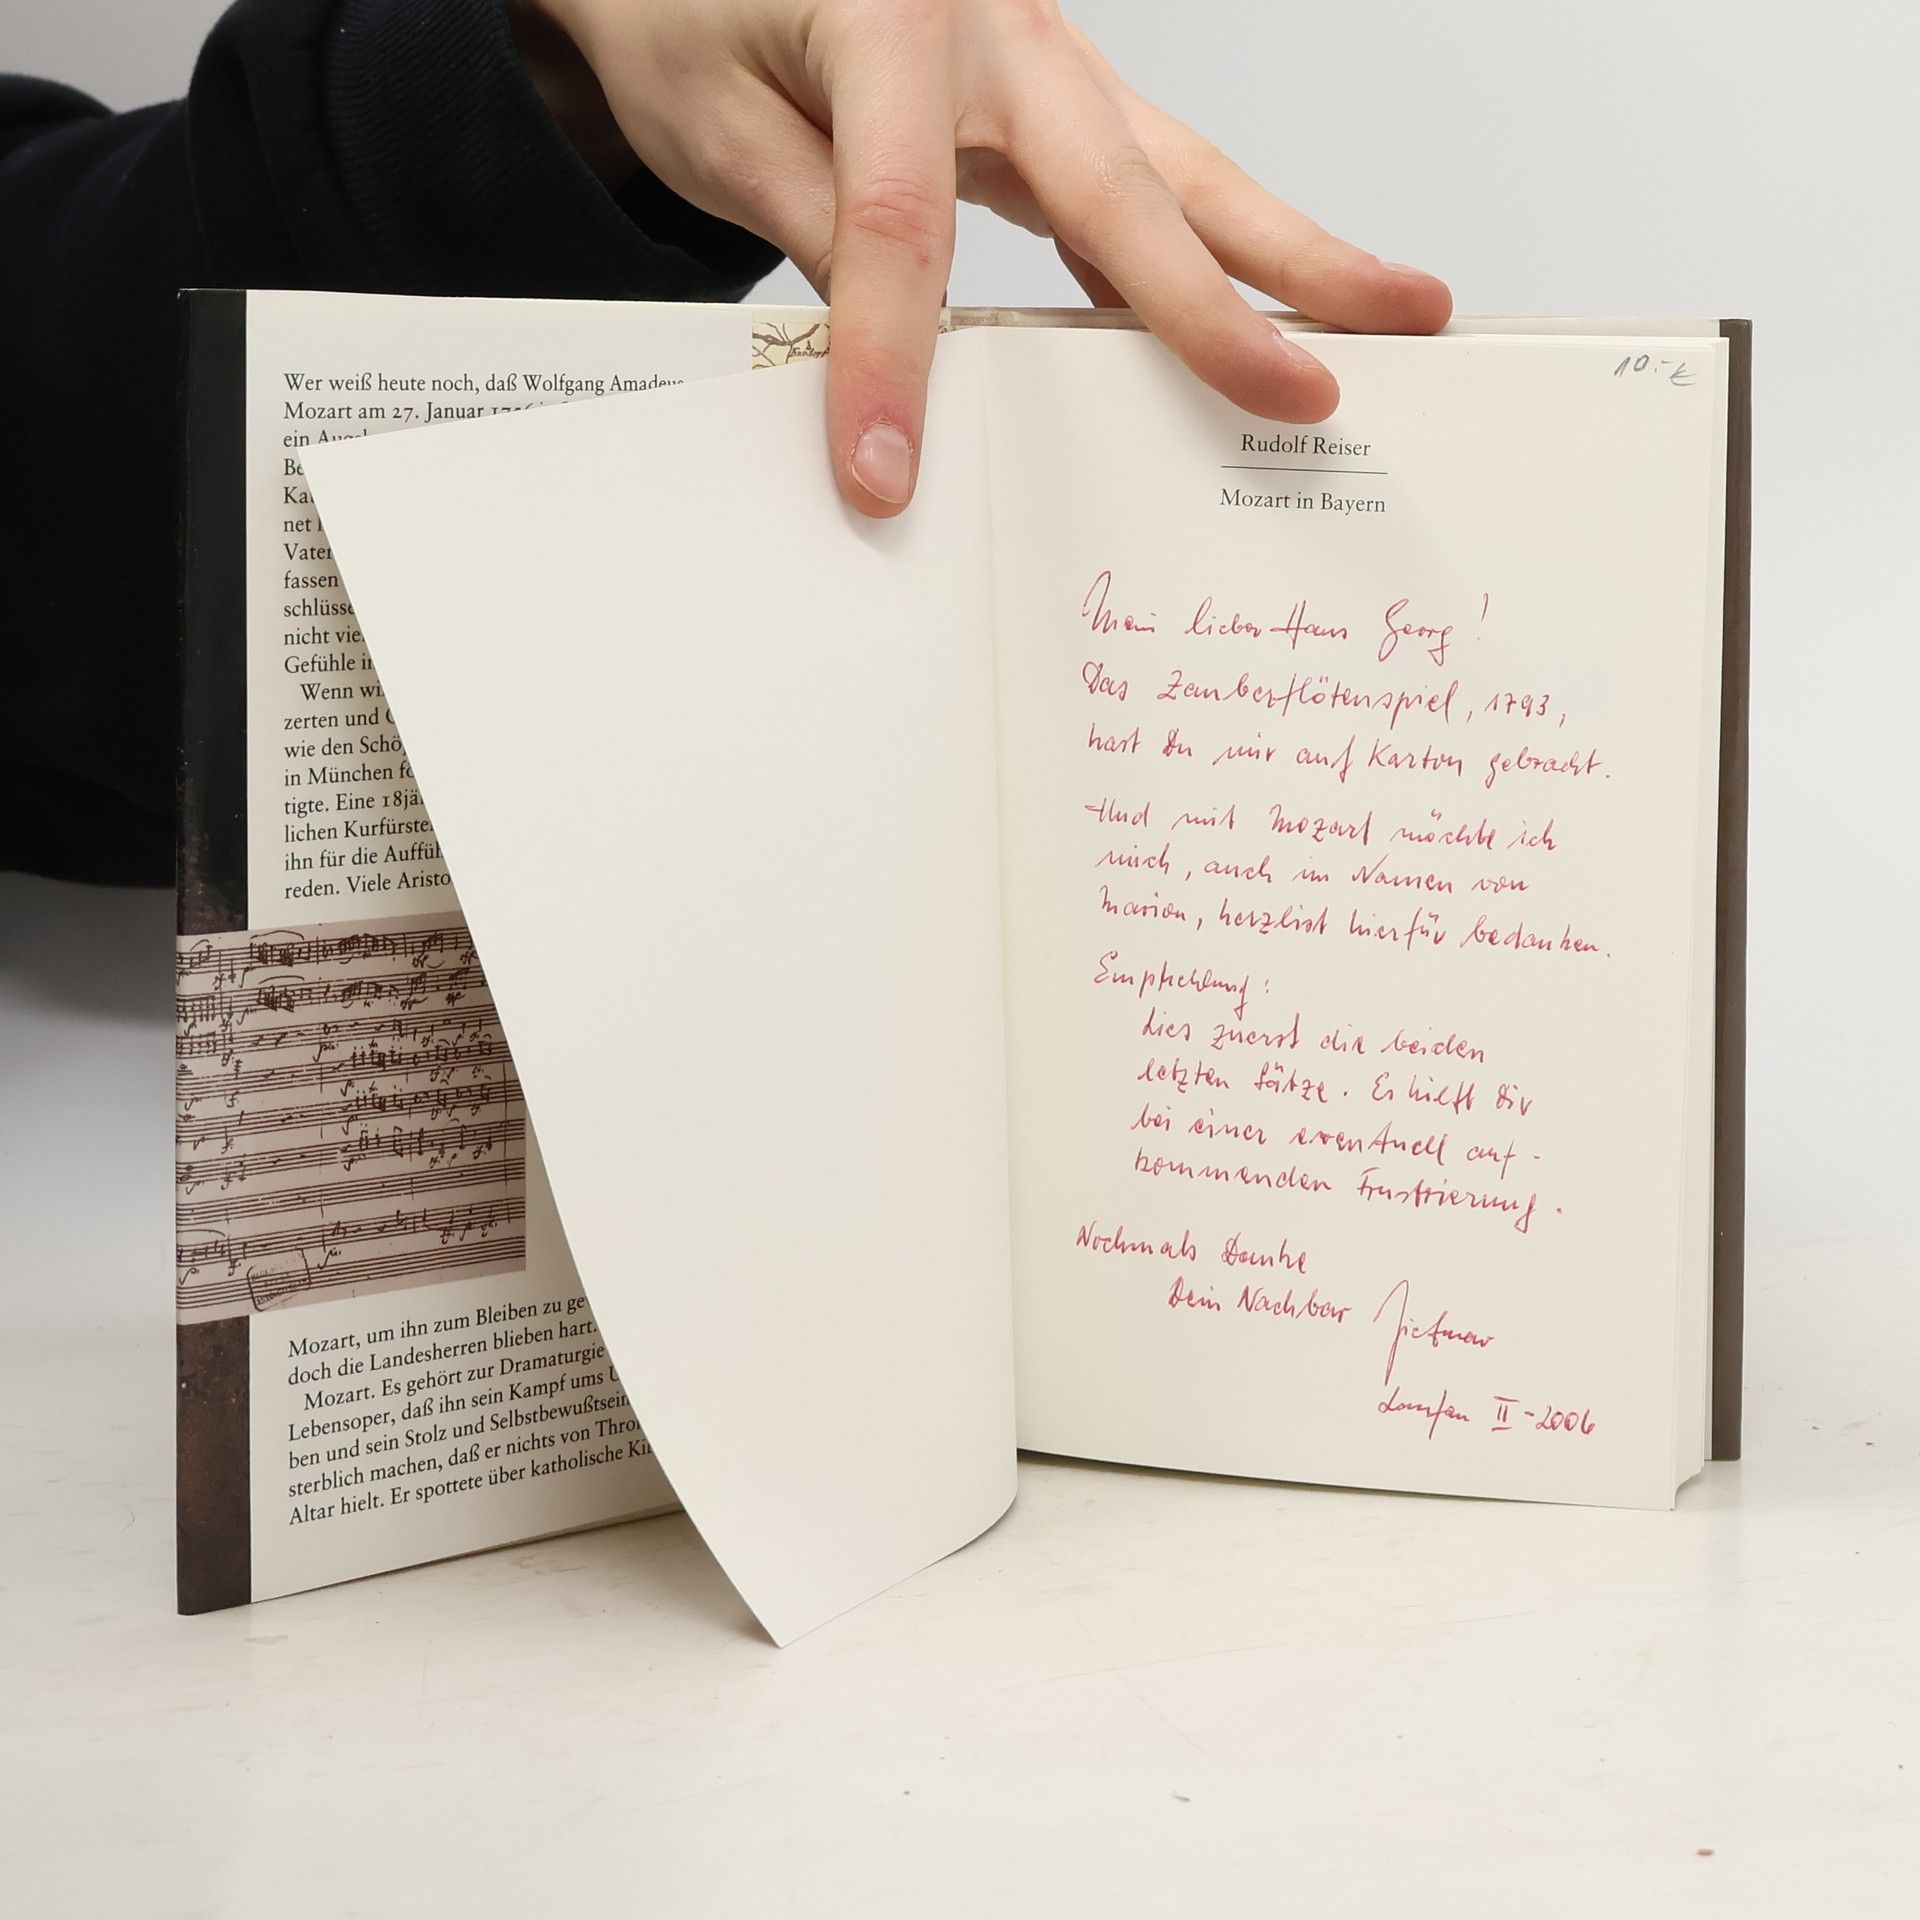 Wer weiß heute noch, daß Wolfgang Amadeus
Mozart am 27. Januar
ein
net
Vater
fassen
nicht
Gefühle
Wenn
zerten und
wie den
in München
tigte. Eine
lichen
ihn für die
reden. Viele
Mozart, um ihn zum Bleiben zu
doch die Landesherren blieben hart.
Mozart. Es gehört zur Dramaturgie
Lebensoper, daß ihn sein Kampf ums
ben und sein Stolz und Selbstbewußtsein
sterblich machen, daß er nichts von
Altar hielt. Er spottete über katholische
10.-€
Rudolf Reiser
Mozart in Bayern
Mein lieber Hans Georg!
Das Zauberflötenspiel, 1793,
hast Du mir auf Karton gebracht.
Und mit Mozart möchte ich
mich, auch im Namen von
Marion, herzlist hierfür bedanken.
Empfehlung:
Lies zuerst die beiden
letzten Sätze. Es hilft Dir
bei einer eventuell auf-
kommenden Frustrierung.
Nochmals Danke
Dein Nachbar Dietmar
Laufen II-2006